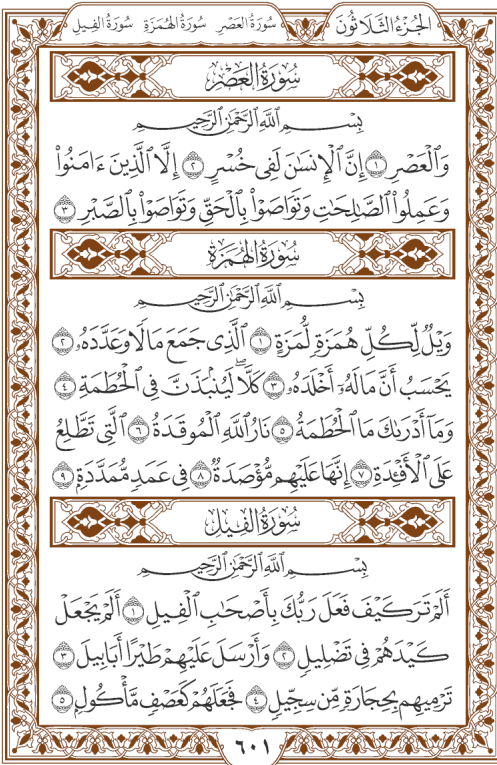 الجُزْءُ الثَّلَاثُونَ سُورَةُ العَصْرِ سُورَةُ الهُمَزَةِ سُورَةُ الفِيلِ
سُورَةُ العَصْرِ
بِسْمِ ٱللَّهِ ٱلرَّحْمَٰنِ ٱلرَّحِيمِ
وَٱلْعَصْرِ ١ إِنَّ ٱلْإِنسَٰنَ لَفِى خُسْرٍ ٢ إِلَّا ٱلَّذِينَ ءَامَنُوا۟
وَعَمِلُوا۟ ٱلصَّٰلِحَٰتِ وَتَوَاصَوْا۟ بِٱلْحَقِّ وَتَوَاصَوْا۟ بِٱلصَّبْرِ ٣
سُورَةُ الهُمَزَةِ
بِسْمِ ٱللَّهِ ٱلرَّحْمَٰنِ ٱلرَّحِيمِ
وَيْلٌ لِّكُلِّ هُمَزَةٍ لُّمَزَةٍ ١ ٱلَّذِى جَمَعَ مَالًا وَعَدَّدَهُۥ ٢
يَحْسَبُ أَنَّ مَالَهُۥٓ أَخْلَدَهُۥ ٣ كَلَّا ۖ لَيُنۢبَذَنَّ فِى ٱلْحُطَمَةِ ٤
وَمَآ أَدْرَىٰكَ مَا ٱلْحُطَمَةُ ٥ نَارُ ٱللَّهِ ٱلْمُوقَدَةُ ٦ ٱلَّتِى تَطَّلِعُ
عَلَى ٱلْأَفْـِٔدَةِ ٧ إِنَّهَا عَلَيْهِم مُّؤْصَدَةٌ ٨ فِى عَمَدٍ مُّمَدَّدَةٍۭ ٩
سُورَةُ الفِيلِ
بِسْمِ ٱللَّهِ ٱلرَّحْمَٰنِ ٱلرَّحِيمِ
أَلَمْ تَرَ كَيْفَ فَعَلَ رَبُّكَ بِأَصْحَٰبِ ٱلْفِيلِ ١ أَلَمْ يَجْعَلْ
كَيْدَهُمْ فِى تَضْلِيلٍ ٢ وَأَرْسَلَ عَلَيْهِمْ طَيْرًا أَبَابِيلَ ٣
تَرْمِيهِم بِحِجَارَةٍ مِّن سِجِّيلٍ ٤ فَجَعَلَهُمْ كَعَصْفٍ مَّأْكُولٍۭ ٥
٦٠١